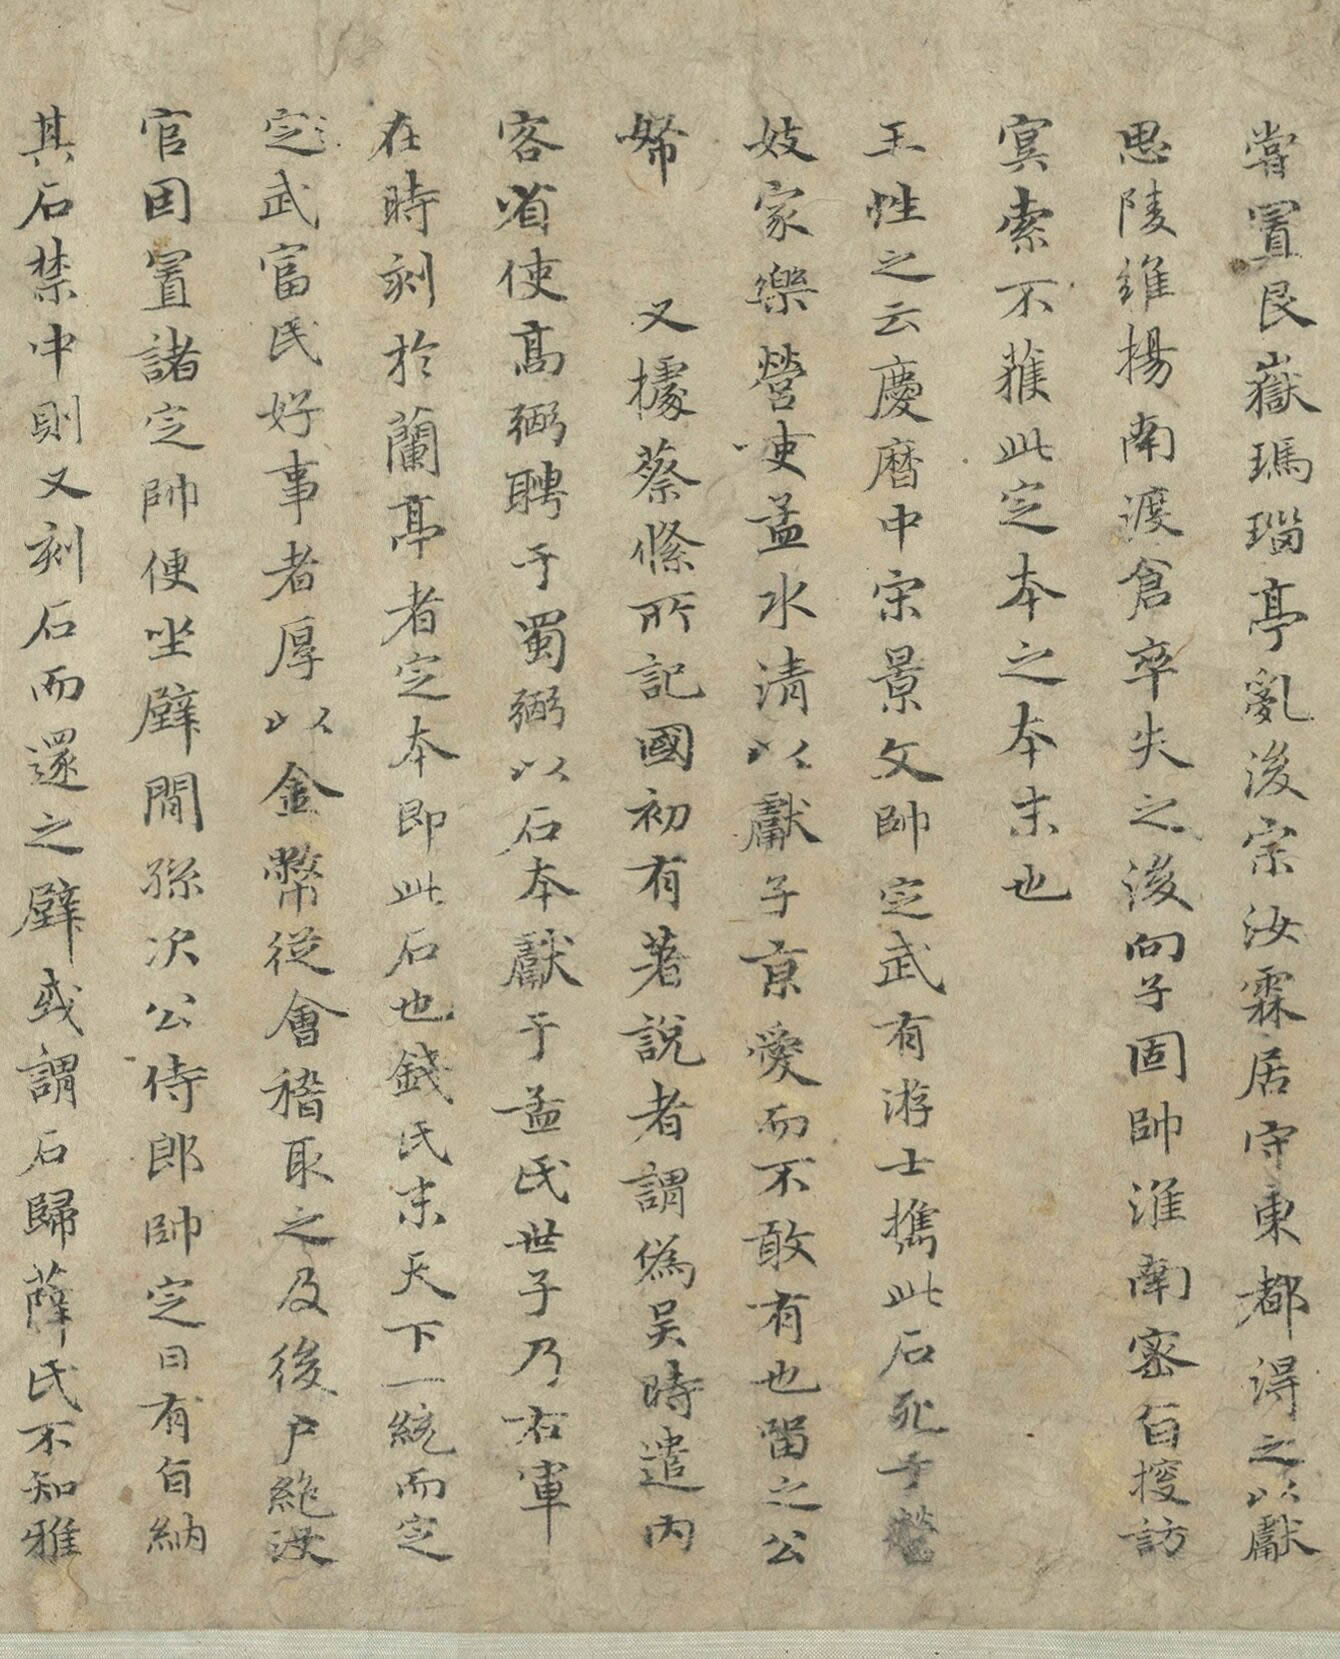 嘗置艮嶽瑪瑙亭亂後宗汝霖居守東都得之以獻
思陵維揚南渡倉卒失之後向子固帥淮南密旨搜訪
冥索不獲此定本之本末也
王性之云慶曆中宋景文帥定武有游士攜此石死于營
妓家樂營吏孟水清以獻子京愛而不敢有也留之公
帑　又據蔡絛所記國初有著說者謂偽吳時遣內
客省使高弼聘于蜀弼以石本獻于孟氏世子乃右軍
在時刻於蘭亭者定本即此石也錢氏末天下一統而定
定武富民好事者厚以金幣從會稽取之及後戶絕沒
官因置諸定帥便坐壁間孫次公侍郎帥定日有旨納
其石禁中則又刻石而還之壁或謂石歸薛氏不知雅